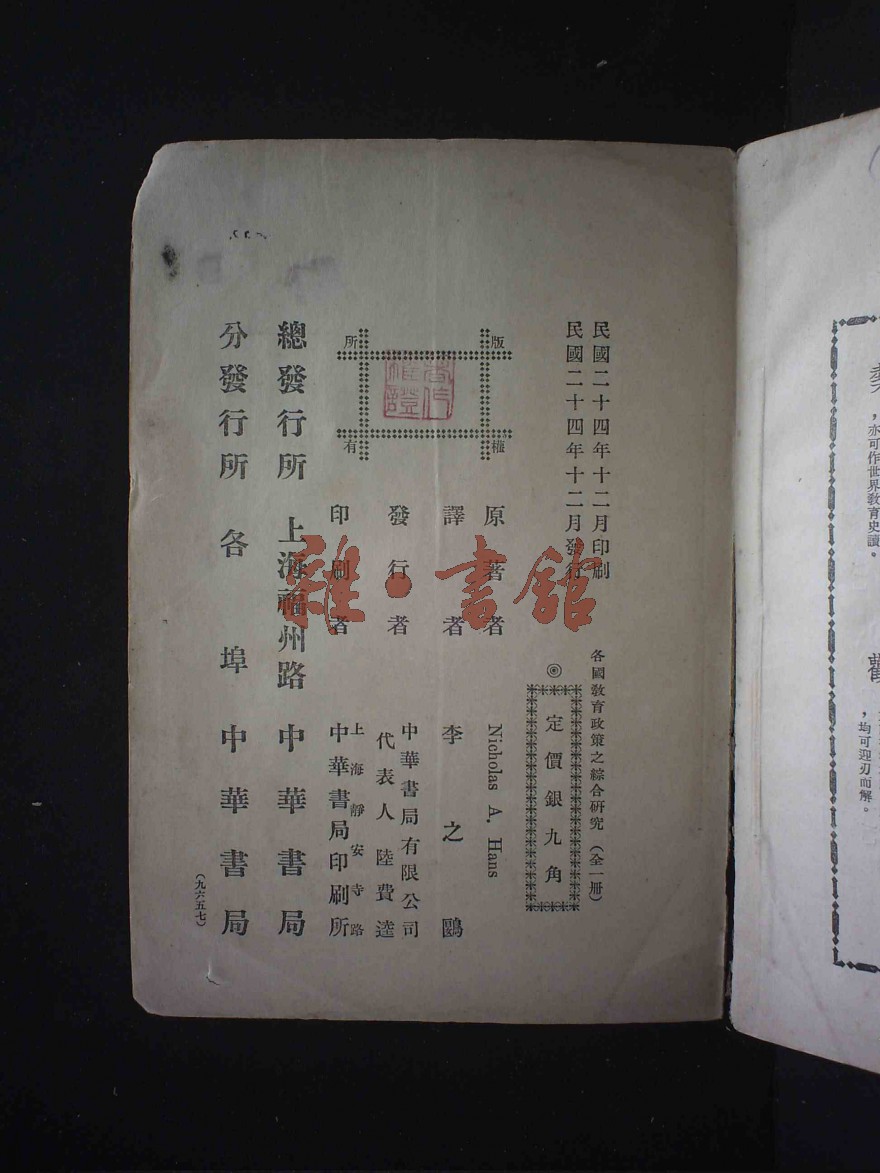 民國二十四年十二月印刷
民國二十四年十二月發行
各國教育政策之綜合研究（全一册）
◎定價銀九角
版權所有
原著者 Nicholas A. Hans
譯者 李之鷗
發行者 中華書局有限公司
代表人 陸費逵
印刷者 上海靜安寺路
中華書局印刷所
總發行所 上海福州路 中華書局
分發行所 各埠 中華書局
（九六五七）
雜·書館
，亦可作世界教育史讀。
，均可迎刃而解。